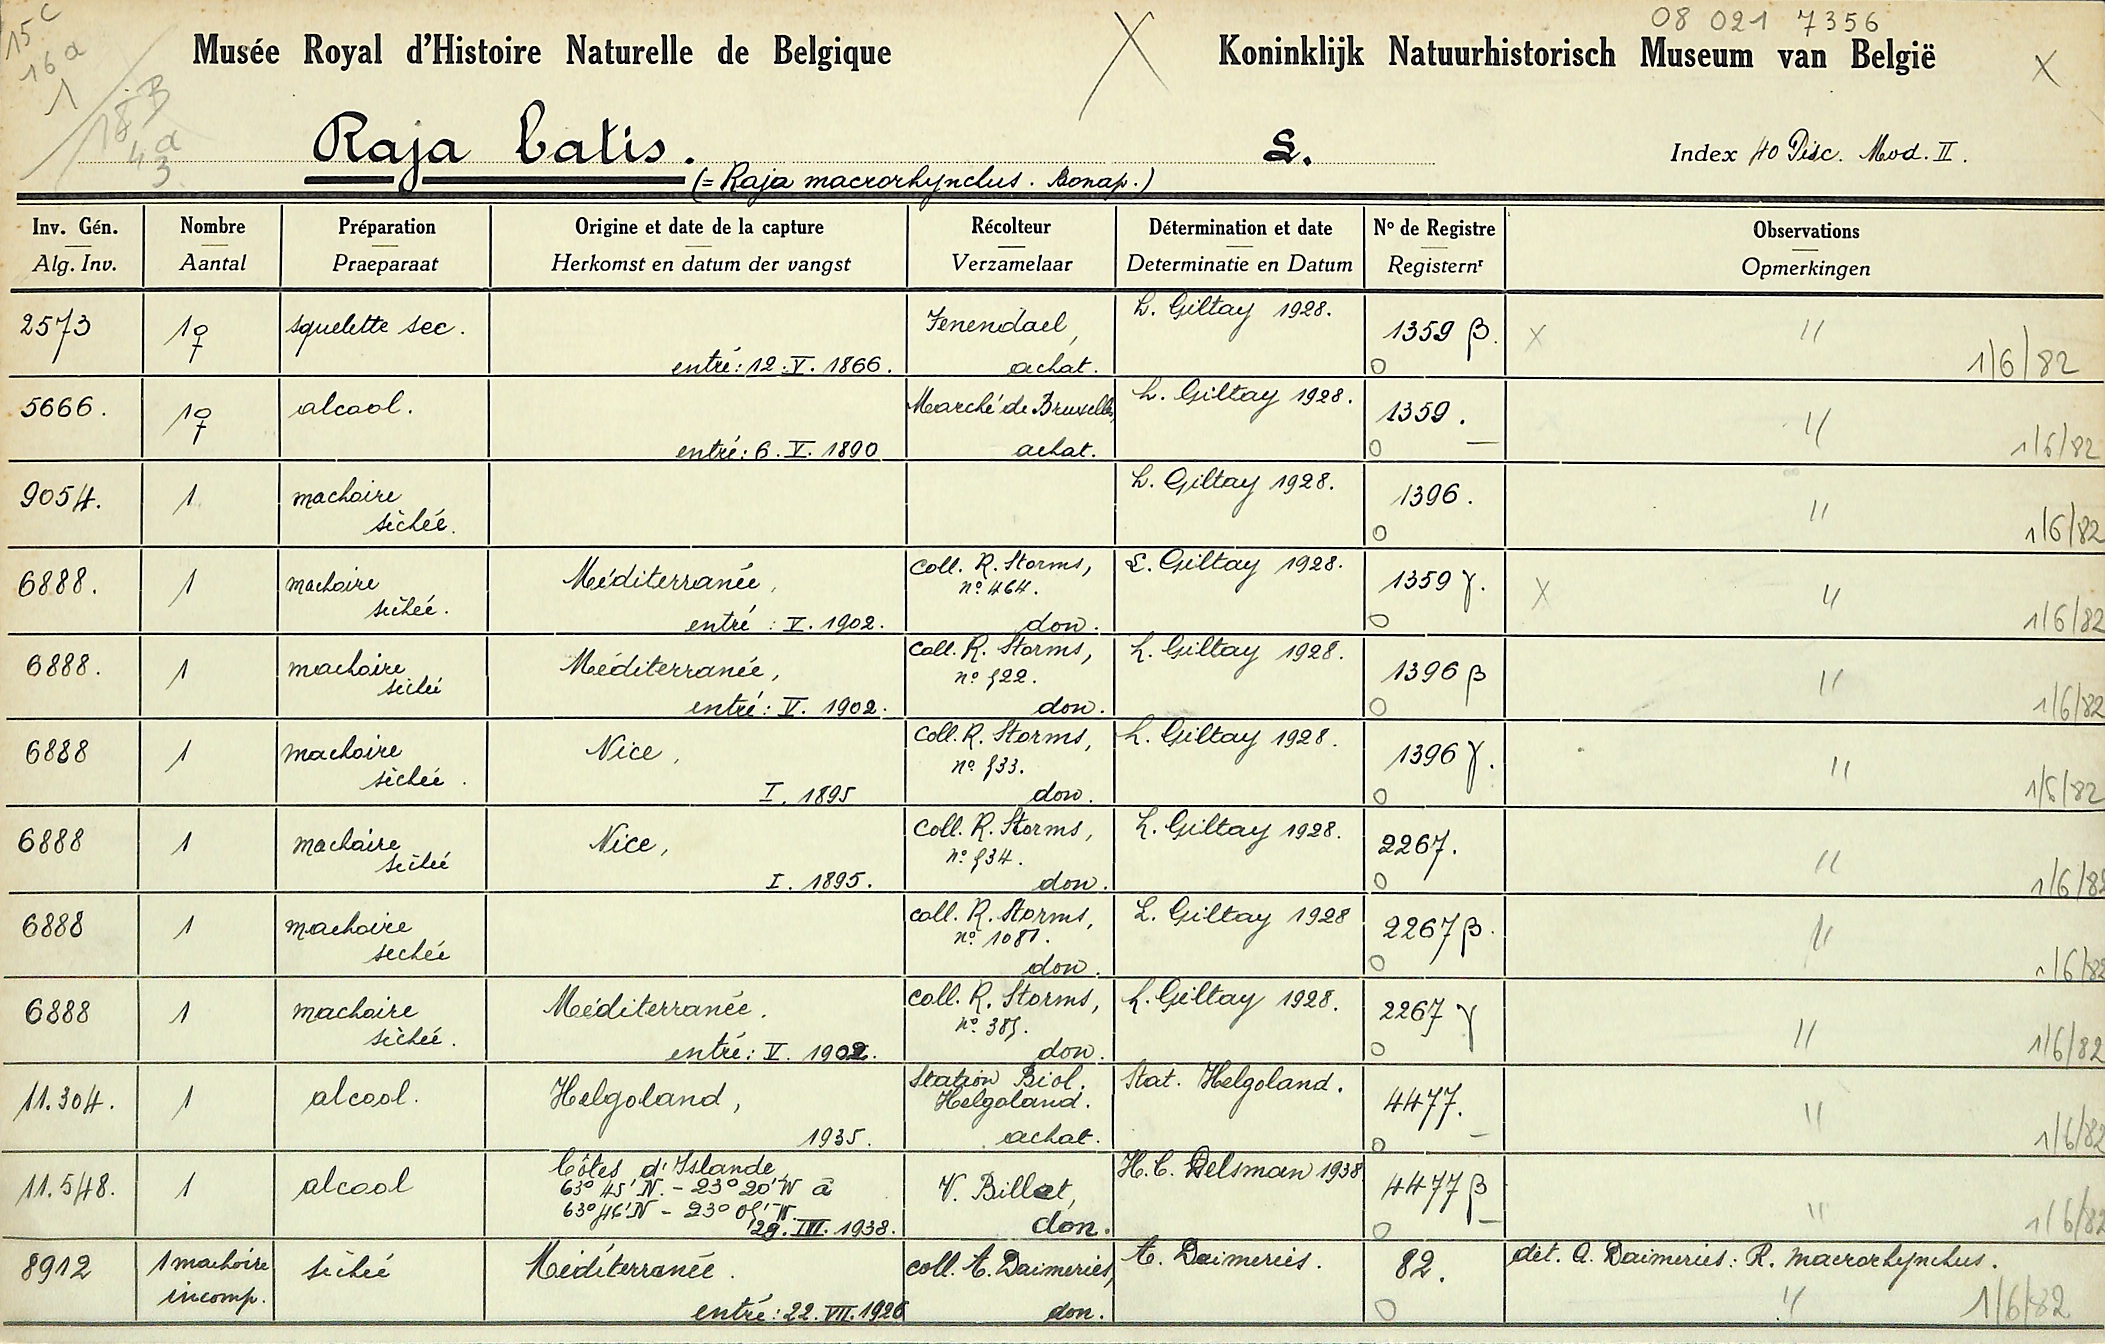 15 c
16 a
1
18 B
4 a
3
08 021 7356
Musée Royal d'Histoire Naturelle de Belgique X Koninklijk Natuurhistorisch Museum van België X
Raja batis. L. Index 40 Disc. Mod. II.
(= Raja macrorhynchus. Bonap.)
Inv. Gén. Nombre Préparation Origine et date de la capture Récolteur Détermination et date N° de Registre Observations
Alg. Inv. Aantal Praeparaat Herkomst en datum der vangst Verzamelaar Determinatie en Datum Registernr Opmerkingen
2573 1♀ squelette sec. L. Giltay 1928. 1359 β. X "
entré: 12.V.1866. achat. O 1/6/82
5666. 1♀ alcool. Marché de Bruxelles, L. Giltay 1928. 1359. "
entré: 6.V.1890 achat. O 1/6/82
9054. 1 machoire L. Giltay 1928. 1396. "
sèchée. O 1/6/82
6888. 1 machoire Méditerranée, coll. R. Storms, L. Giltay 1928. 1359 γ. X "
sèchée. n° 464.
entré: V.1902. don. O 1/6/82
6888. 1 machoire Méditerranée, coll. R. Storms, L. Giltay 1928. 1396 β "
sèchée n° 522.
entré: V.1902. don. O 1/6/82
6888 1 machoire Nice, coll. R. Storms, L. Giltay 1928. 1396 γ. "
sèchée. n° 533.
I. 1895 don. O 1/6/82
6888 1 machoire Nice, coll. R. Storms, L. Giltay 1928. 2267. "
sèchée n° 534.
I. 1895. don. O 1/6/82
6888 1 machoire coll. R. Storms, L. Giltay 1928 2267 β. "
sechée n° 1081.
don. O 1/6/82
6888 1 machoire Méditerranée. coll. R. Storms, L. Giltay 1928. 2267 γ "
sèchée. n° 385.
entré: V. 1902. don. O 1/6/82
11.304. 1 alcool. Helgoland, Station Biol. Stat. Helgoland. 4477. "
Helgoland.
1935. achat. O 1/6/82
11.548. 1 alcool Côtes d'Islande V. Billet, H.C. Delsman 1938 4477 β "
63° 45' N. - 23° 20' W à
63° 46' N - 23° 05' W.
29.III.1938. don. O 1/6/82
8912 1 machoire sèchée Méditerranée. coll. A. Daimeries, A. Daimeries. 82. dét. A. Daimeries: R. macrorhynchus.
incomp. "
entré: 22.VII.1926 don. O 1/6/82